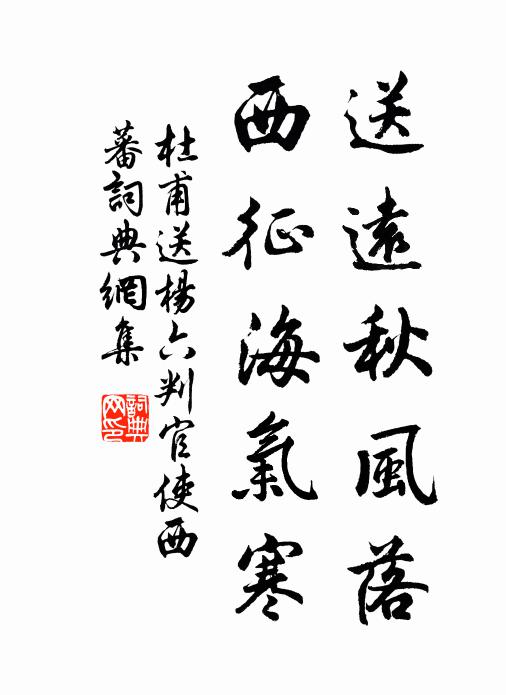 送遠秋風落
西征海氣寒
杜甫送楊六判官使西
蕃詞典網集
詞典
网印